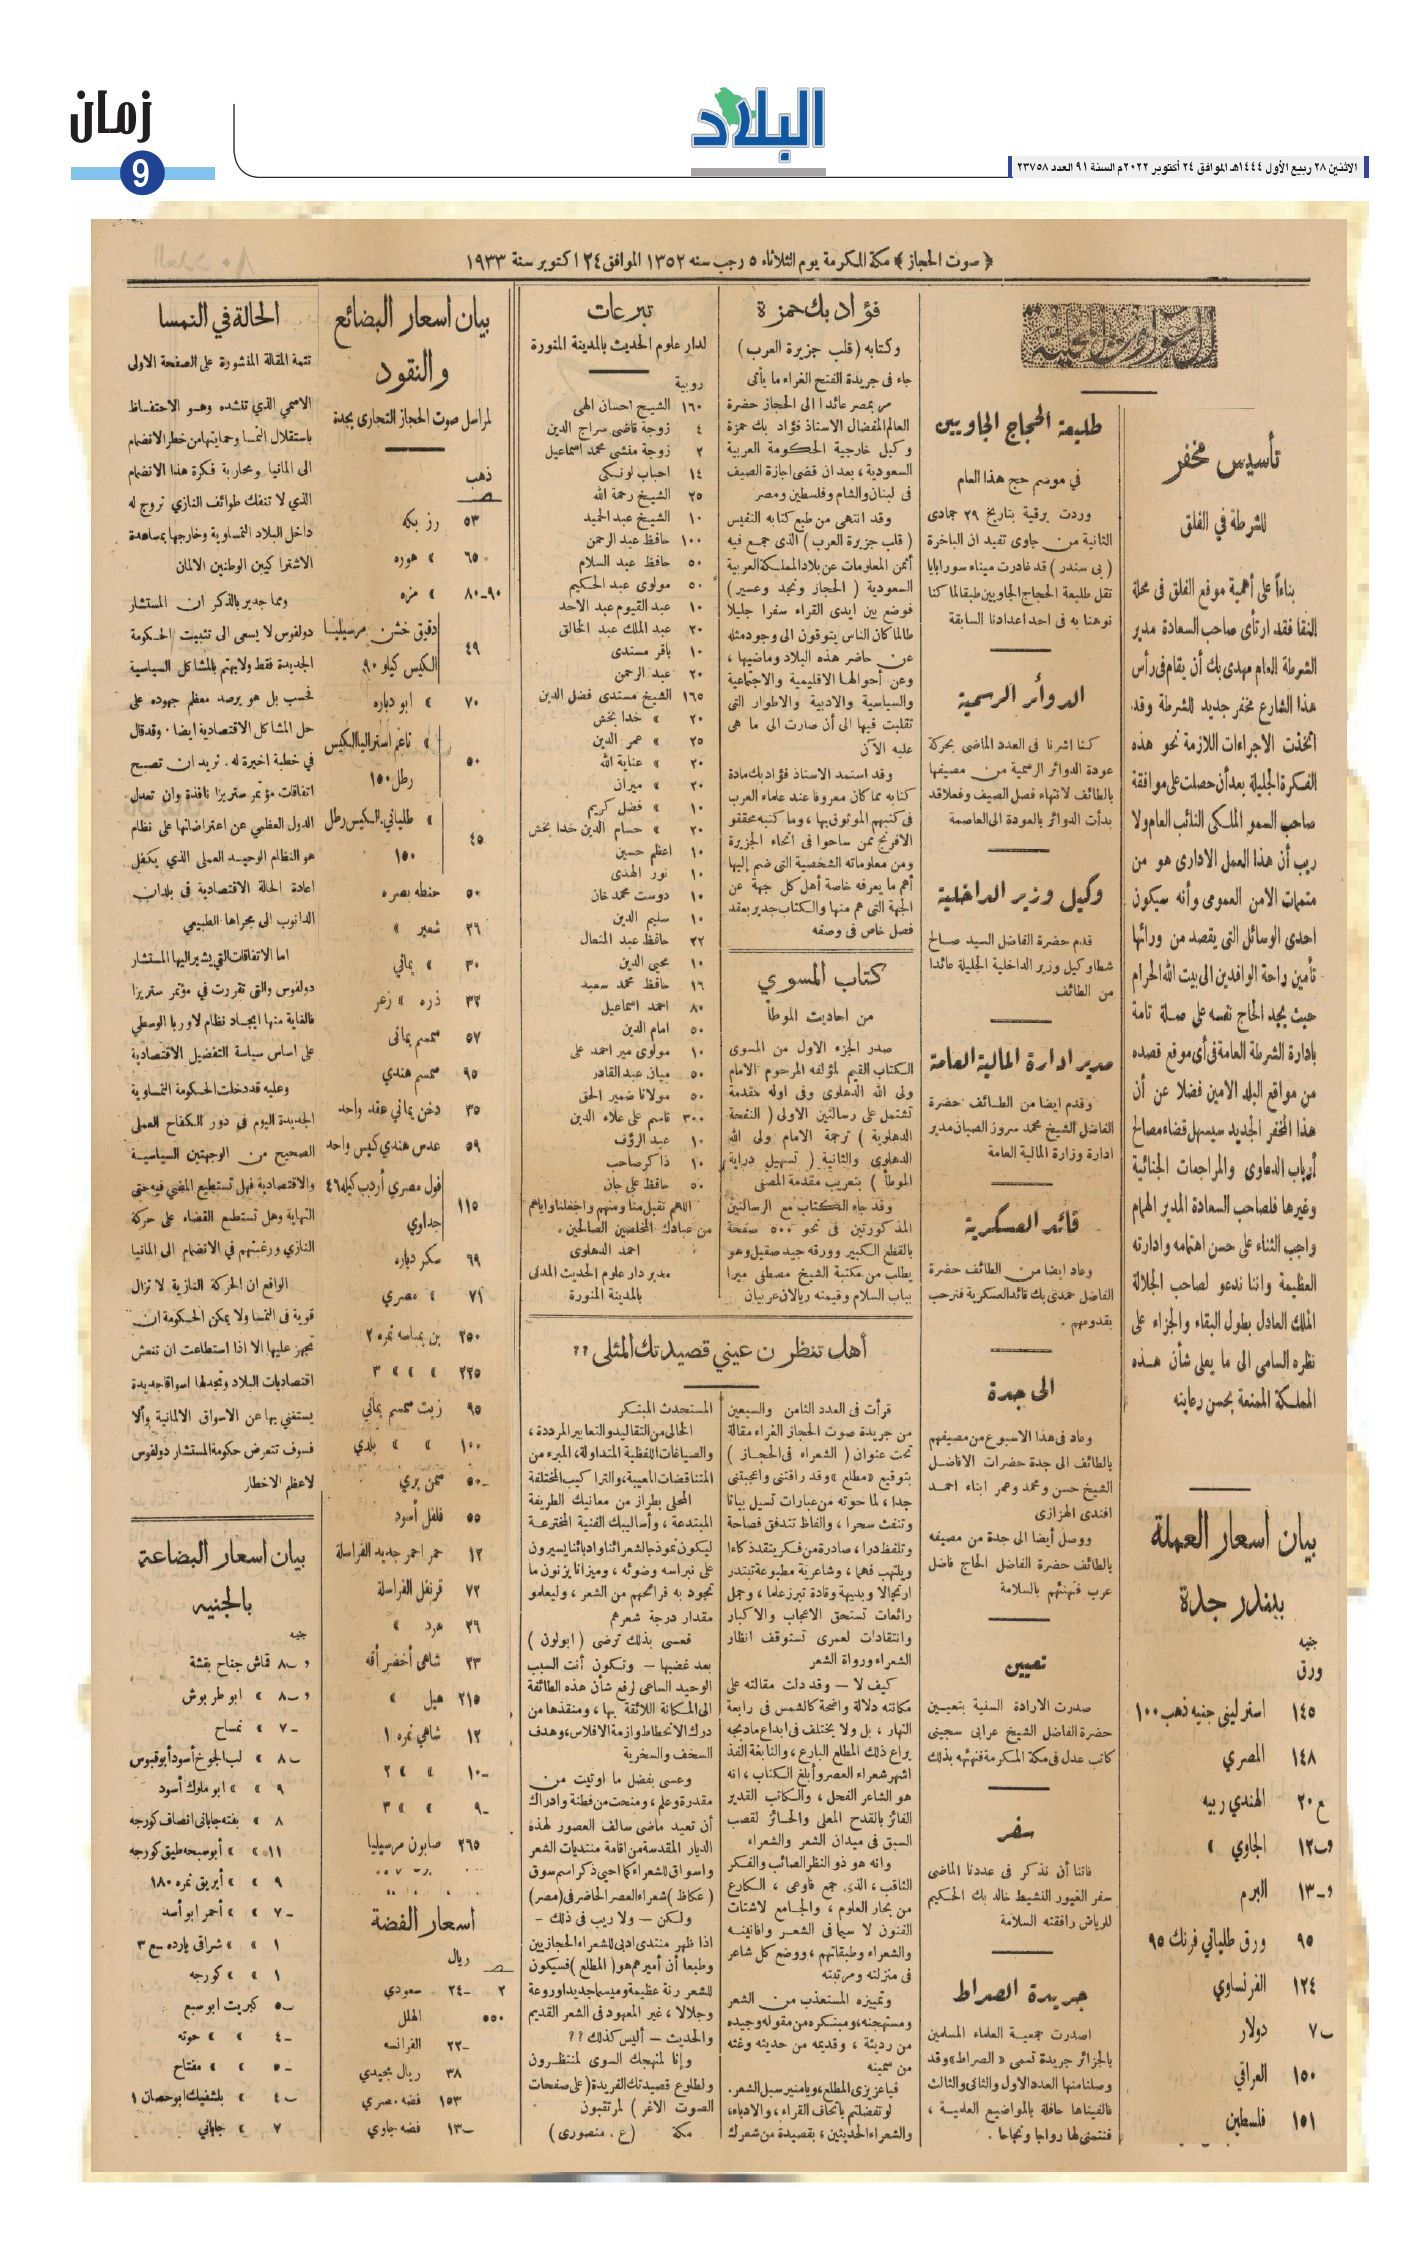 زمان
9
البلاد
الاثنين ٢٨ ربيع الأول ١٤٤٤هـ الموافق ٢٤ أكتوبر ٢٠٢٢م السنة ٩١ العدد ٢٣٧٥٨
﴿ صوت الحجاز ﴾ مكة المكرمة يوم الثلاثاء ٥ رجب سنه ١٣٥٢ الموافق ٢٤ اكتوبر سنة ١٩٣٣
تأسيس مخفر
للشرطة في الفلق
بناءاً على أهمية موقع الفلق في محلة
النقا فقد ارتأى صاحب السعادة مدير
الشرطة العام مهدى بك أن يقام فى رأس
هذا الشارع مخفر جديد للشرطة وقد
اتخذت الاجراءات اللازمة نحو هذه
الفكرة الجليلة بعد أن حصلت على موافقة
صاحب السمو الملكى النائب العام ولا
ريب أن هذا العمل الادارى هو من
متممات الامن العمومى وأنه سيكون
احدى الوسائل التى يقصد من ورائها
تأمين راحة الوافدين الى بيت الله الحرام
حيث يجد الحاج نفسه على صلة تامة
بادارة الشرطة العامة فى أى موقع قصده
من مواقع البلد الامين فضلا عن أن
هذا المخفر الجديد سيسهل قضاء مصالح
أرباب الدعاوى والمراجعات الجنائية
وغيرها فلصاحب السعادة المدير الهمام
واجب الثناء على حسن اهتمامه وادارته
العظيمة واننا ندعو لصاحب الجلالة
الملك العادل بطول البقاء والجزاء على
نظره السامى الى ما يعلى شأن هذه
المملكة الممتعة بحسن رعايته
بيان اسعار العملة
ببندر جدة
جنيه
ورق
١٤٥ استرلينى جنيه ذهب ١٠٠
١٤٨ المصري
الهندي ربيه
الجاوي »
البرم
٩٥ ورق طلياني فرنك ٩٥
١٢٤ الفرنساوي
دولار
١٥٠ العراقي
١٥١ فلسطين
طليعة الحجاج الجاويين
في موسم حج هذا العام
وردت برقية بتاريخ ٢٩ جمادى
الثانية من جاوى تفيد ان الباخرة
( بى سندر ) قد غادرت ميناء سورابايا
تقل طليعة الحجاج الجاويين طبقا لما كنا
نوهنا به فى احد اعدادنا السابقة
الدوائر الرسمية
كنا اشرنا فى العدد الماضى بحركة
عودة الدوائر الرسمية من مصيفها
بالطائف لانتهاء فصل الصيف وفعلا قد
بدأت الدوائر بالعودة الى العاصمة
وكيل وزير الداخلية
قدم حضرة الفاضل السيد صالح
شطا وكيل وزير الداخلية الجليلة عائدا
من الطائف
مدير ادارة المالية العامة
وقدم ايضا من الطائف حضرة
الفاضل الشيخ محمد سرور الصبان مدير
ادارة وزارة المالية العامة
قائد العسكرية
وعاد ايضا من الطائف حضرة
الفاضل حمدى بك قائد العسكرية فنرحب
بقدومهم .
الى جدة
وعاد فى هذا الاسبوع من مصيفهم
بالطائف الى جدة حضرات الافاضل
الشيخ حسن ومحمد وعمر ابناء احمد
افندى الهزازى
ووصل أيضا الى جدة من مصيفه
بالطائف حضرة الفاضل الحاج فاضل
عرب فنهنئهم بالسلامة
تعيين
صدرت الارادة السنية بتعيين
حضرة الفاضل الشيخ عرابى سجينى
كاتب عدل فى مكة المكرمة فنهنئه بذلك
سفر
فاتنا أن نذكر فى عددنا الماضى
سفر الغيور النشيط خالد بك الحكيم
للرياض رافقته السلامة
جريدة الصراط
اصدرت جمعية العلماء المسلمين
بالجزائر جريدة تسمى « الصراط » وقد
وصلنا منها العدد الاول والثانى والثالث
فالفيناها حافلة بالمواضيع العلمية ،
فنتمنى لها رواجا ونجاحا .
فؤاد بك حمزة
وكتابه ( قلب جزيرة العرب )
جاء فى جريدة الفتح الغراء ما يأتى
مر بمصر عائدا الى الحجاز حضرة
العالم المفضال الاستاذ فؤاد بك حمزة
وكيل خارجية الحكومة العربية
السعودية ، بعد ان قضى اجازة الصيف
فى لبنان والشام وفلسطين ومصر
وقد انتهى من طبع كتابه النفيس
( قلب جزيرة العرب ) الذى جمع فيه
أثمن المعلومات عن بلاد المملكة العربية
السعودية ( الحجاز ونجد وعسير )
فوضع بين ايدى القراء سفرا جليلا
طالما كان الناس يتوقون الى وجود مثله
عن حاضر هذه البلاد وماضيها ،
وعن أحوالها الاقليمية والاجتماعية
والسياسية والادبية والاطوار التى
تقلبت فيها الى أن صارت الى ما هى
عليه الآن
وقد استمد الاستاذ فؤاد بك مادة
كتابه مما كان معروفا عند علماء العرب
فى كتبهم الموثوق بها ، وما كتبه محققو
الافرنج ممن ساحوا فى انحاء الجزيرة
ومن معلوماته الشخصية التى ضم إليها
أهم ما يعرفه خاصة أهل كل جهة عن
الجهة التى هم منها والكتاب جدير بعقد
فصل خاص فى وصفه
كتاب المسوي
من احاديث الموطأ
صدر الجزء الاول من المسوى
الكتاب القيم لمؤلفه المرحوم الامام
ولى الله الدهلوى وفى اوله مقدمة
تشتمل على رسالتين الاولى ( النفحة
الدهلوية ) ترجمة الامام ولى الله
الدهلوى والثانية ( تسهيل دراية
الموطأ ) بتعريب مقدمة المصفى
وقد جاء الكتاب مع الرسالتين
المذكورتين فى نحو ٥٠٠ صفحة
بالقطع الكبير وورقه جيد صقيل وهو
يطلب من مكتبة الشيخ مصطفى ميرا
بباب السلام وقيمته ريالان عربيان
تبرعات
لدار علوم الحديث بالمدينة المنورة
روبية
١٦٠ الشيخ احسان الهى
٤ زوجة قاضى سراج الدين
٢ زوجة مفشى محمد اسماعيل
١٤ احباب لونكى
٢٥ الشيخ رحمة الله
١٠ الشيخ عبد الحميد
١٠٠ حافظ عبد الرحمن
٥٠ حافظ عبد السلام
٥٠ مولوى عبد الحكيم
١٠ عبد القيوم عبد الاحد
٢٠ عبد الملك عبد الخالق
١٠ باقر مسندى
٢٠ عبد الرحمن
١٦٥ الشيخ مستدى فضل الدين
٢٠ » خدا بخش
٢٥ » عمر الدين
٢٠ » عناية الله
٢٠ » ميران
١٠ » فضل كريم
٢٠ » حسام الدين خدا بخش
١٠ اعظم حسين
١٠ نور الهدى
١٠ دوست محمد خان
١٠ سليم الدين
٢٢ حافظ عبد المتعال
١٠ محيى الدين
١٦ حافظ محمد سعيد
٨٠ احمد اسماعيل
٥٠ امام الدين
١٠ مولوى مير احمد على
٥٠ ميان عبد القادر
٥٠ مولانا ضمير الحق
٣٠٠ قاسم على علاء الدين
١٠ عبد الرؤف
١٠ ذاكر صاحب
٥٠ حافظ على جان
اللهم تقبل منا ومنهم واجعلنا واياهم
من عبادك المخلصين الصالحين .
احمد الدهلوى
مدير دار علوم الحديث المدنى
بالمدينة المنورة
أهل تنظر ن عيني قصيدتك المثلى ؟؟
قرأت فى العدد الثامن والسبعين
من جريدة صوت الحجاز الغراء مقالة
تحت عنوان ( الشعراء فى الحجاز )
بتوقيع « مطلع » وقد راقتنى واعجبتنى
جدا ، لما حوته من عبارات تسيل بيانا
وتنفث سحرا ، والفاظ تتدفق فصاحة
وتلفظ درا ، صادرة من فكر يتقد ذكاءا
ويلتهب فهما ، وشاعرية مطبوعة تبتدر
ارتجالا وبديهة وقادة تبرز علما ، وجمل
رائعات تستحق الاعجاب والاكبار
وانتقادات لعمرى تستوقف انظار
الشعراء ورواة الشعر
كيف لا — وقد دلت مقالته على
مكانته دلالة واضحة كالشمس فى رابعة
النهار ، بل ولا يختلف فى ابداع ما دبجه
يراع ذلك المطلع البارع ، والنابغة الفذ
اشهر شعراء العصر وأبلغ الكتاب ، انه
هو الشاعر الفحل ، والكاتب القدير
الفائز بالقدح المعلى والحائز لقصب
السبق فى ميدان الشعر والشعراء
وانه هو ذو النظر الصائب والفكر
الثاقب ، الذى جمع فاوعى ، الكارع
من بحار العلوم ، والجامع لاشتات
الفنون لا سيما فى الشعر وافانينه
والشعراء وطبقاتهم ، ووضع كل شاعر
فى منزلته ومرتبته
وتمييزه المستعذب من الشعر
ومستهجنه ، ومبتكره من مقوله وجيده
من رديئة ، وقديمه من حديثه وغثه
من سمينه
فيا عزيزى المطلع ، ويامنير سبل الشعر .
لو تفضلتم باتحاف القراء ، والادباء ،
والشعراء الحديثين ، بقصيدة من شعرك
المستحدث المبتكر
الخالى من التقاليد والتعابير المرددة ،
والصياغات اللفظية المتداولة ، المبرء من
المتناقضات المعيبة ، والتراكيب المختلفة
المحلى بطراز من معانيك الطريفة
المبتدعة ، وأساليبك الفنية المخترعة
ليكون نموذجا لشعرائنا وادبائنا يسيرون
على نبراسه وضوئه ، وميزانا يزنون ما
تجود به قرائحهم من الشعر ، وليعلمو
مقدار درجة شعرهم
فعسى بذلك ترضى ( ابولون )
بعد غضبها — وتكون أنت السبب
الوحيد الساعى لرفع شأن هذه الطائفة
الى المكانة اللائقة بها ، ومنقذها من
درك الانحطاط وازمة الافلاس ، وهدف
السخف والسخرية
وعسى بفضل ما اوتيت من
مقدرة وعلم ، ومنحت من فطنة وادراك
أن تعيد ماضى سالف العصور لهذه
الديار المقدسة من اقامة منتديات الشعر
واسواق للشعراء كما احيى ذكر اسم سوق
( عكاظ ) شعراء العصر الحاضر فى ( مصر )
ولكن — ولا ريب فى ذلك —
اذا ظهر منتدى ادبى للشعراء الحجازيين
وطبعا أن أميرهم هو ( المطلع ) فسيكون
للشعر رنة عظيمة وميسما جديدا وروعة
وجلالا ، غير المعهود فى الشعر القديم
والحديث — أليس كذلك ؟؟
وإنا لمنهجك السوى لمنتظرون
ولطلوع قصيدتك الفريدة ( على صفحات
الصوت الاغر ) لمرتقبون
مكة ( ع . منصورى )
بيان اسعار البضائع
والنقود
لمراسل صوت الحجاز التجارى بجدة
ذهب
٥٣ رز بكه
٦٥ » هوره
٩٠-٨٠ » مزه
٤٩ دقيق خشن مرسيليا
الكيس كيلو ٩٠
٧٠ » ابو دباره
٥٠ » ناعم استراليا الكيس
رطل ١٥٠
٤٥ » طلياني الكيس رطل
١٥٠
٥٠ حنطه بصره
٢٦ شعير »
٣٠ » يماني
٣٢ ذره » زعر
٥٧ سمسم يمانى
٩٥ سمسم هندي
٣٥ دخن يماني عقد واحد
٥٩ عدس هندي كيس واحد
١١٥ فول مصري أردب كيله ٤٦
جداوي
٦٩ سكر دباره
٧١ » مصري
٢٥٠ بن بمباسه نمره ٢
٢٢٥ » » » ٣
٩٥ زيت سمسم يماني
١٠٠ » » بلدي
٥٠- سمن بري
٥٥ فلفل أسود
١٢ حمر احمر جديد الفراسلة
٧٢ قرنفل الفراسلة
٢٦ هرد »
٢٣ شاهى أخضر أقه
٢١٥ هيل »
١٢ شاهي نمره ١
١٠- » » ٢
٩- » » ٣
٢٦٥ صابون مرسيليا
اسعار الفضة
ريال
٢ ٢٤- سعودي
٥٥٠ الهلل
٢٢- الفرانسه
٣٨ ريال مجيدي
١٥٣ فضه مصري
فضه جاوي
الحالة في النمسا
تتمة المقالة المنشورة على الصفحة الاولى
الاسمي الذي تنشده وهو الاحتفاظ
باستقلال النمسا وحمايتها من خطر الانضمام
الى المانيا ومحاربة فكرة هذا الانضمام
الذي لا تنفك طوائف النازي تروج له
داخل البلاد النمساوية وخارجها بمساعدة
الاشتراكيين الوطنيين الالمان
ومما جدير بالذكر ان المستشار
دولفوس لا يسعى الى تثبيت الحكومة
الجديدة فقط ولا يهتم بالمشاكل السياسية
فحسب بل هو يرصد معظم جهوده على
حل المشاكل الاقتصادية ايضا . وقد قال
في خطبة اخيرة له . نريد ان تصبح
اتفاقات مؤتمر ستريزا نافذة وان تعدل
الدول العظمي عن اعتراضاتها على نظام
هو النظام الوحيد العملى الذي يكفل
اعادة الحالة الاقتصادية فى بلدان
الدانوب الى مجراها الطبيعي
اما الاتفاقات التي يشير اليها المستشار
دولفوس والتى تقررت في مؤتمر ستريزا
فالغاية منها ايجاد نظام لاوربا الوسطي
على اساس سياسة التفضيل الاقتصادية
وعليه قد دخلت الحكومة النمساوية
الجديدة اليوم في دور الكفاح العملى
الصحيح من الوجهتين السياسية
والاقتصادية فهل تستطيع المضي فيه حتى
النهاية وهل تستطيع القضاء على حركة
النازي ورغبتهم في الانضمام الى المانيا
الواقع ان الحركة النازية لا تزال
قوية فى النمسا ولا يمكن الحكومة ان
تجهز عليها الا اذا استطاعت ان تنعش
اقتصاديات البلاد وتجد لها اسواقا جديدة
يستغني بها عن الاسواق الالمانية وألا
فسوف تتعرض حكومة المستشار دولفوس
لاعظم الاخطار
بيان اسعار البضاعة
بالجنيه
جنيه
قماش جناح بقشة
» ابو طربوش
٧- » تمساح
» لب الجوخ أسود أبو قبوس
٩ » » ابو ملوك أسود
٨ » بفته جابانى انصاف كورجه
١١ » » أبو سبحه طيق كورجه
٩ » » أبريق نمره ١٨٠
٧- » » أحمر ابو أسد
١ » » كورجه
كبريت ابو سبع
٤- » » حوته
٥- » » مفتاح
٧ » » جاباني